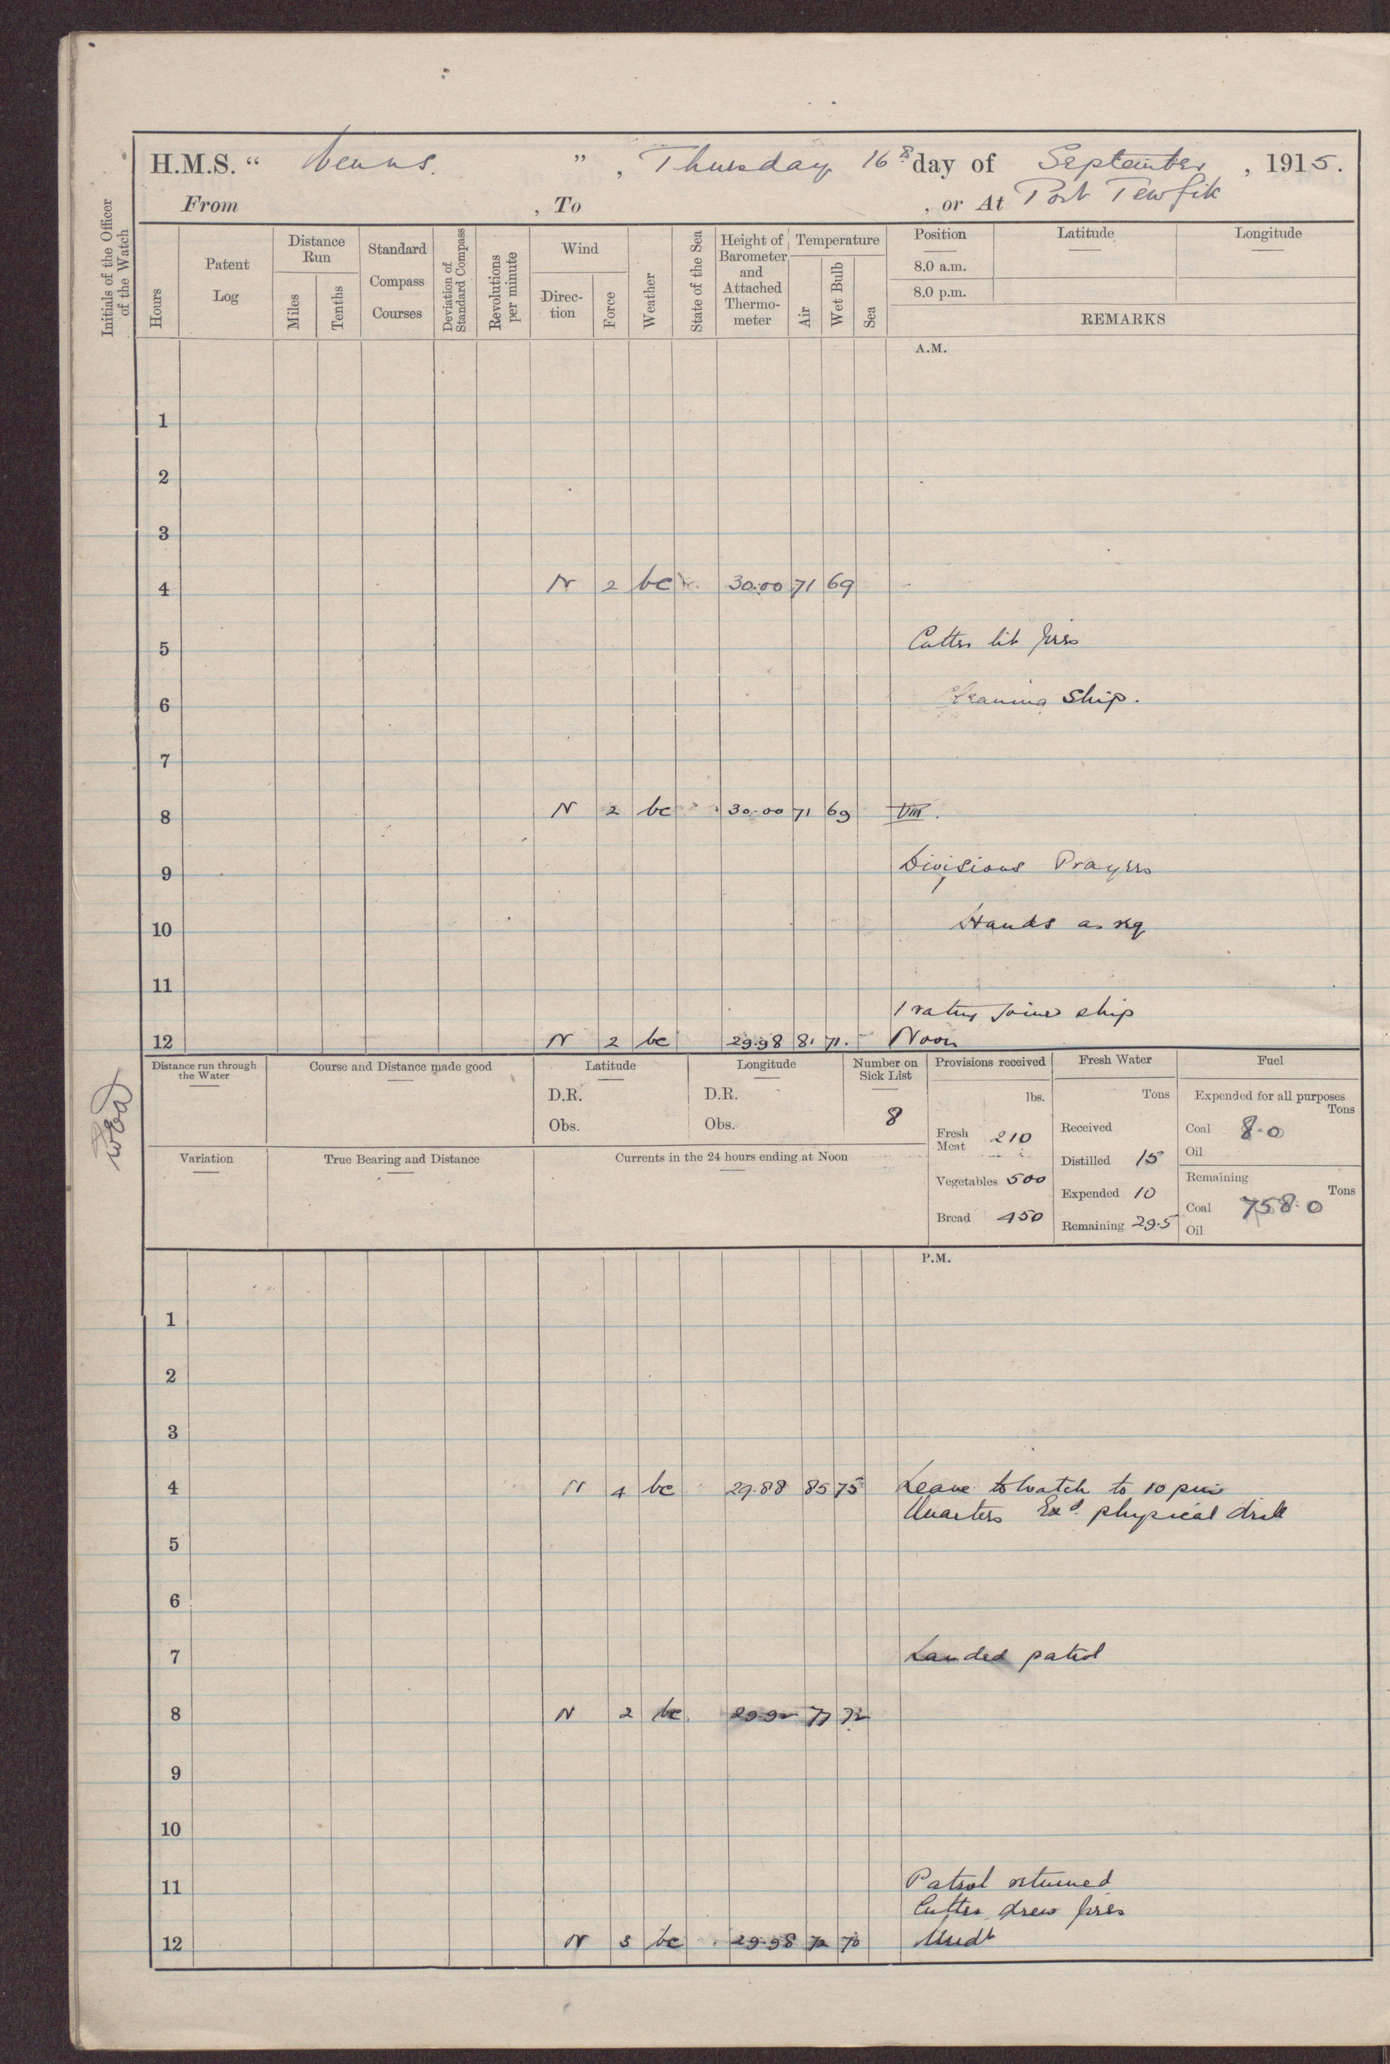 H.M.S. “ Venus. ”, Thursday 16th day of September, 1915.
From , To , or At Port Tewfik
Initials of the Officer of the Watch
Hours
Patent Log
Distance Run
Miles
Tenths
Standard Compass Courses
Deviation of Standard Compass
Revolutions per minute
Wind
Direction
Force
Weather
State of the Sea
Height of Barometer and Attached Thermometer
Temperature
Air
Wet Bulb
Sea
Position Latitude Longitude
8.0 a.m.
8.0 p.m.
REMARKS
A.M.
1
2
3
4 N 2 bc 30.00 71 69
5 Cutter lit fires
6 Cleaning Ship.
7
8 N 2 bc 30.00 71 69 VIII.
9 Divisions Prayers
10 Hands as req
11
1 rating joined ship
12 N 2 bc 29.98 81 71. Noon
Distance run through the Water
Course and Distance made good
Latitude
D.R.
Obs.
Longitude
D.R.
Obs.
Number on Sick List
8
Provisions received
lbs.
Fresh Meat 210
Vegetables 500
Bread 450
Fresh Water
Tons
Received
Distilled 15
Expended 10
Remaining 295
Fuel
Expended for all purposes
Tons
Coal 8.0
Oil
Remaining
Tons
Coal 758.0
Oil
Variation
True Bearing and Distance
Currents in the 24 hours ending at Noon
P.M.
1
2
3
4 N 4 bc 29.88 85 75 Leave to Watch to 10 pm
Quarters Exd. physical drill
5
6
7 Landed patrol
8 N 2 bc 29.92 77 72
9
10
11 Patrol returned
Cutter drew fires
12 N 3 bc 29.98 72 70 Midt